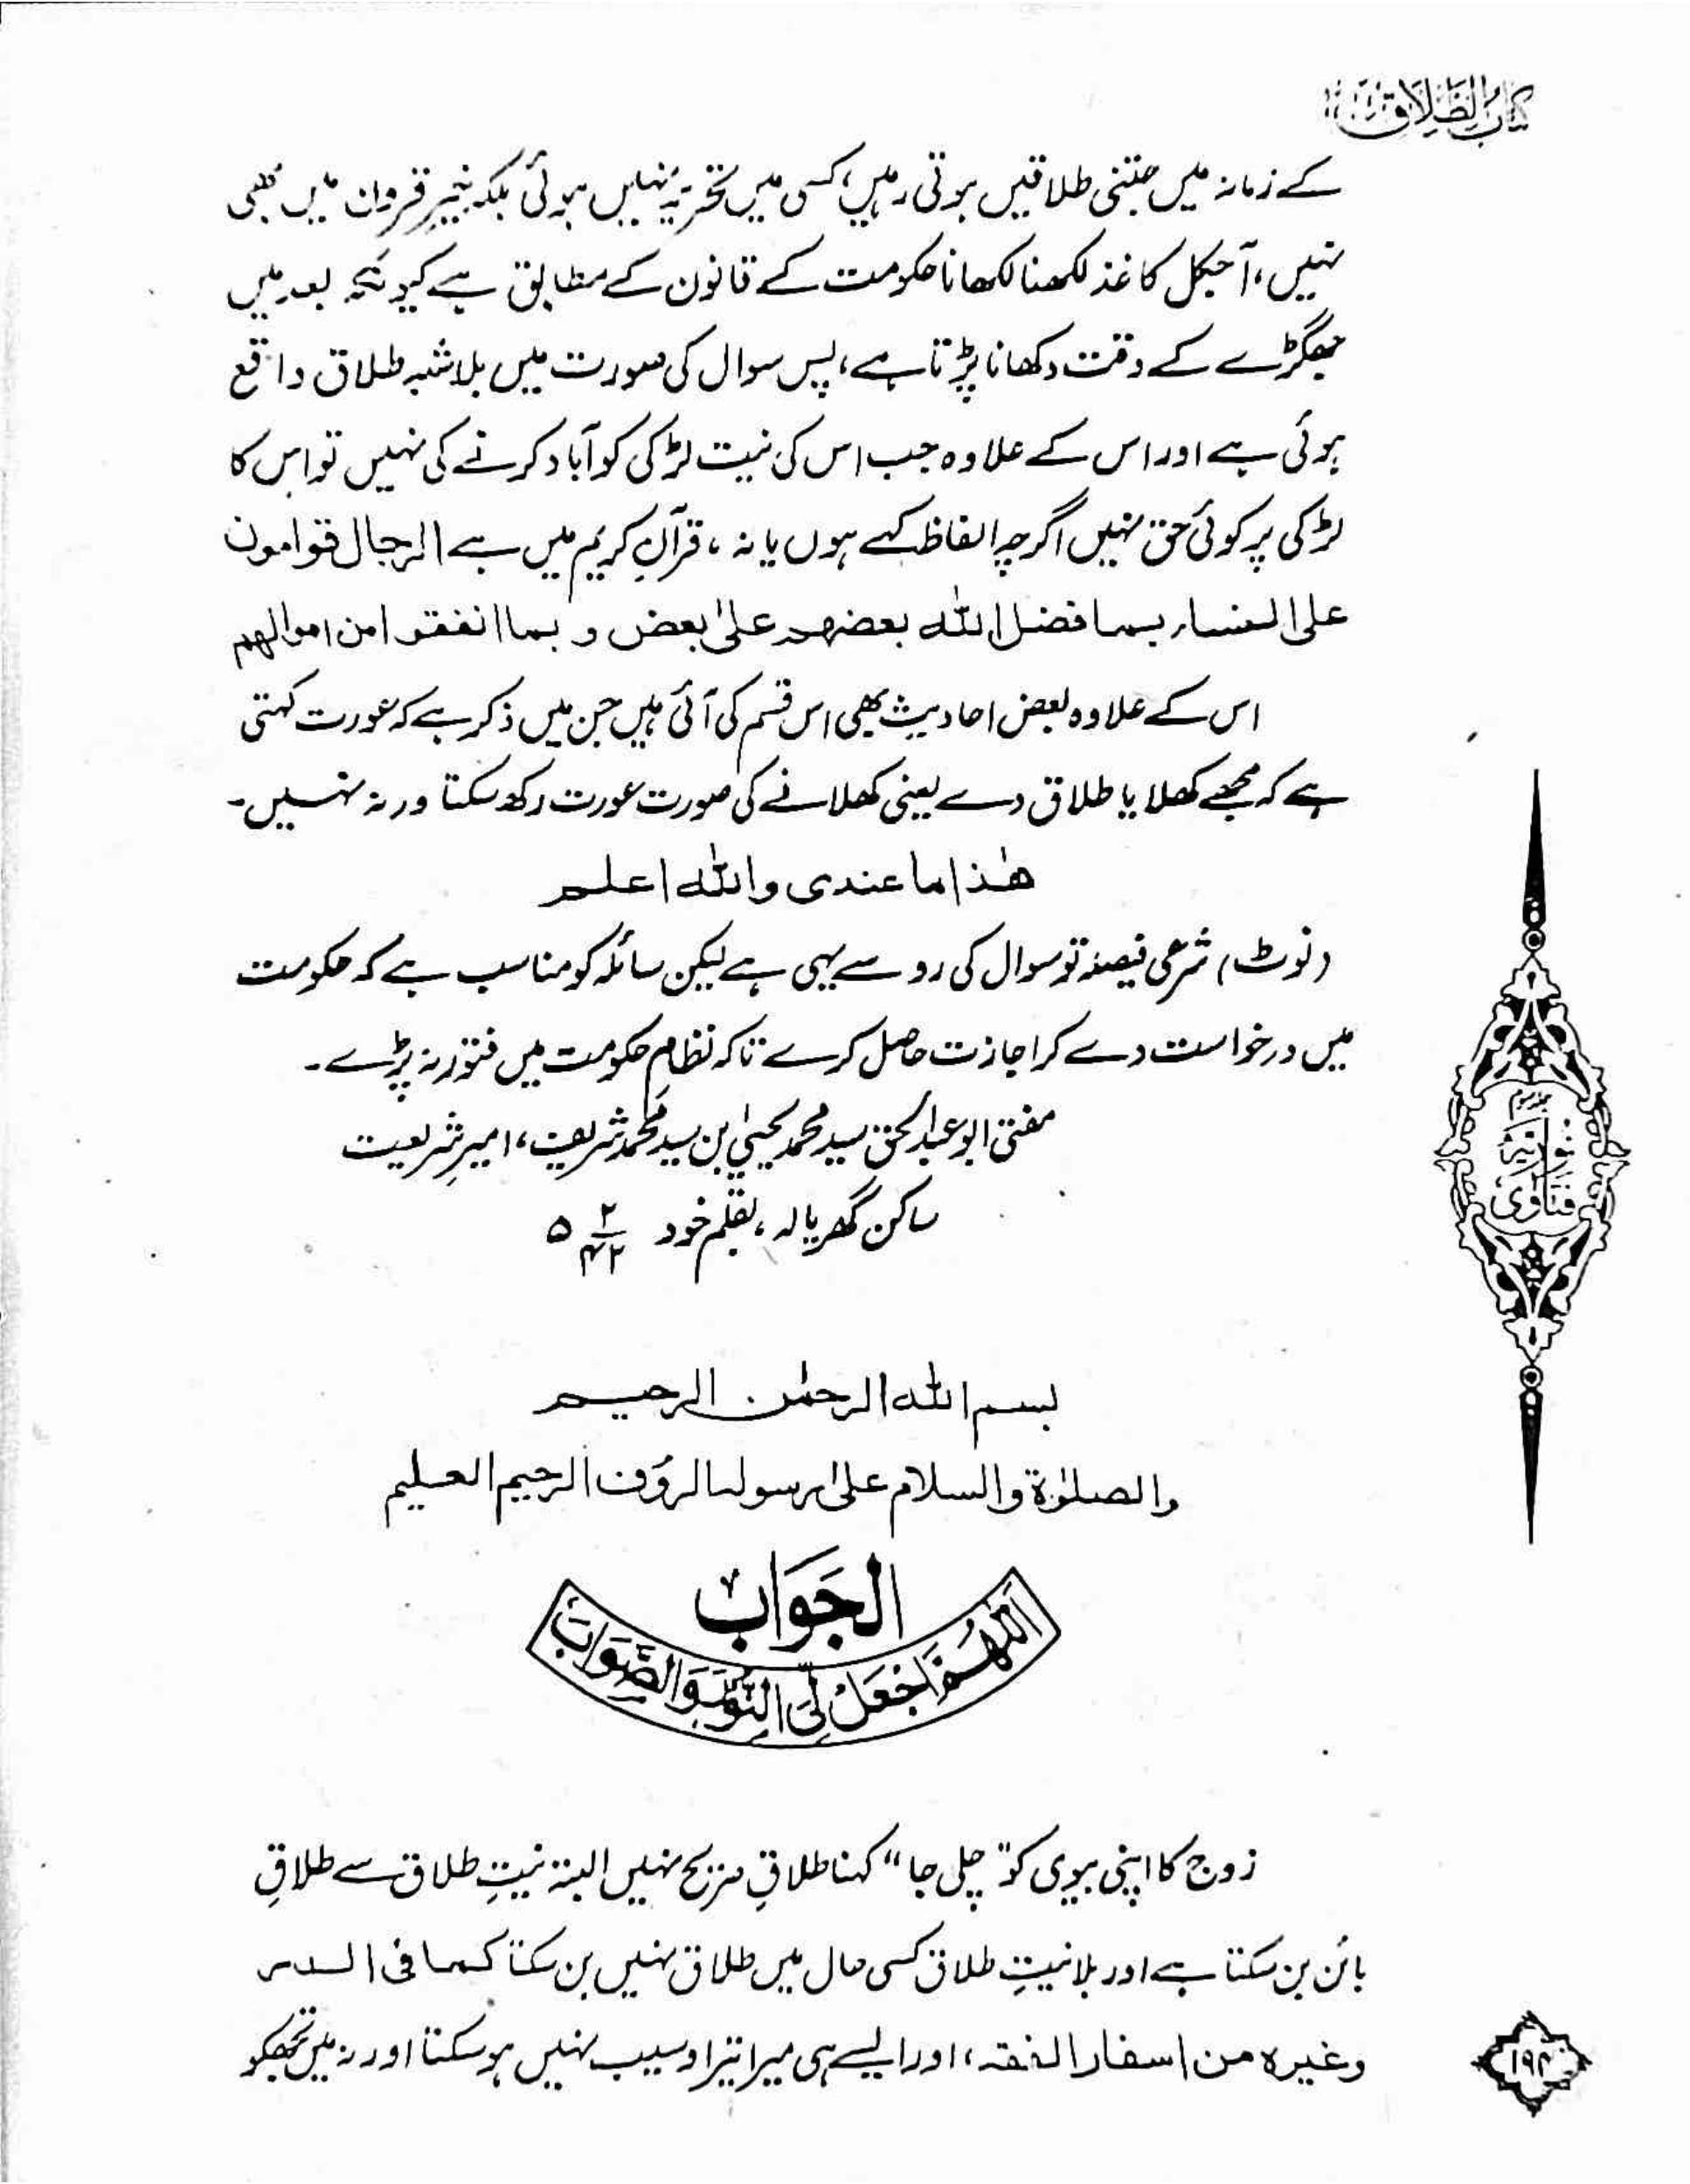 کتاب الطلاق
کے زمانہ میں جتنی طلاقیں ہوتی رہیں، کسی میں تحریر نہیں ہوئی بلکہ خیر قرون میں بھی
نہیں، آجکل کاغذ لکھنا لکھانا حکومت کے قانون کے مطابق ہے کیونکہ بعد میں
جھگڑے کے وقت دکھانا پڑتا ہے، پس سوال کی صورت میں بلاشبہ طلاق واقع
ہوئی ہے اور اس کے علاوہ جب اس کی نیت لڑکی کو آباد کرنے کی نہیں تو اس کا
لڑکی پر کوئی حق نہیں اگرچہ الفاظ کہے ہوں یا نہ، قرآنِ کریم میں ہے الرجال قوامون
علی النساء بما فضل اللہ بعضهم علیٰ بعض و بما انفقوا من اموالهم
اس کے علاوہ بعض احادیث بھی اس قسم کی آئی ہیں جن میں ذکر ہے کہ عورت کہتی
ہے کہ مجھے کھلا یا طلاق دے یعنی کھلانے کی صورت عورت رکھ سکتا ورنہ نہیں۔
هٰذا ما عندی واللہ اعلم
(نوٹ) شرعی فیصلہ تو سوال کی رو سے یہی ہے لیکن سائلہ کو مناسب ہے کہ حکومت
میں درخواست دے کر اجازت حاصل کرے تاکہ نظامِ حکومت میں فتور نہ پڑے۔
مفتی ابو عبدالحق سید محمد یحییٰ بن سید محمد شریف، امیرِ شریعت
ساکن گھریالہ، بقلم خود ۲/۴۲ ۵
فتاوی نوریہ
بسم اللہ الرحمٰن الرحیم
والصلوٰة والسلام علیٰ رسولہ الرؤف الرحیم العلیم
الجَوَاب
اَللّٰهُمَّ اجْعَلْ لِیَ النُّوْرَ وَالصَّوَابَ
زوج کا اپنی بیوی کو "چلی جا" کہنا طلاقِ صریح نہیں البتہ نیتِ طلاق سے طلاقِ
بائن بن سکتا ہے اور بلا نیتِ طلاق کسی حال میں طلاق نہیں بن سکتا کما فی الدر
وغیرہ من اسفار الفقہ، اور ایسے ہی میرا تیرا وسیب نہیں ہو سکتا اور نہ میں تجھکو